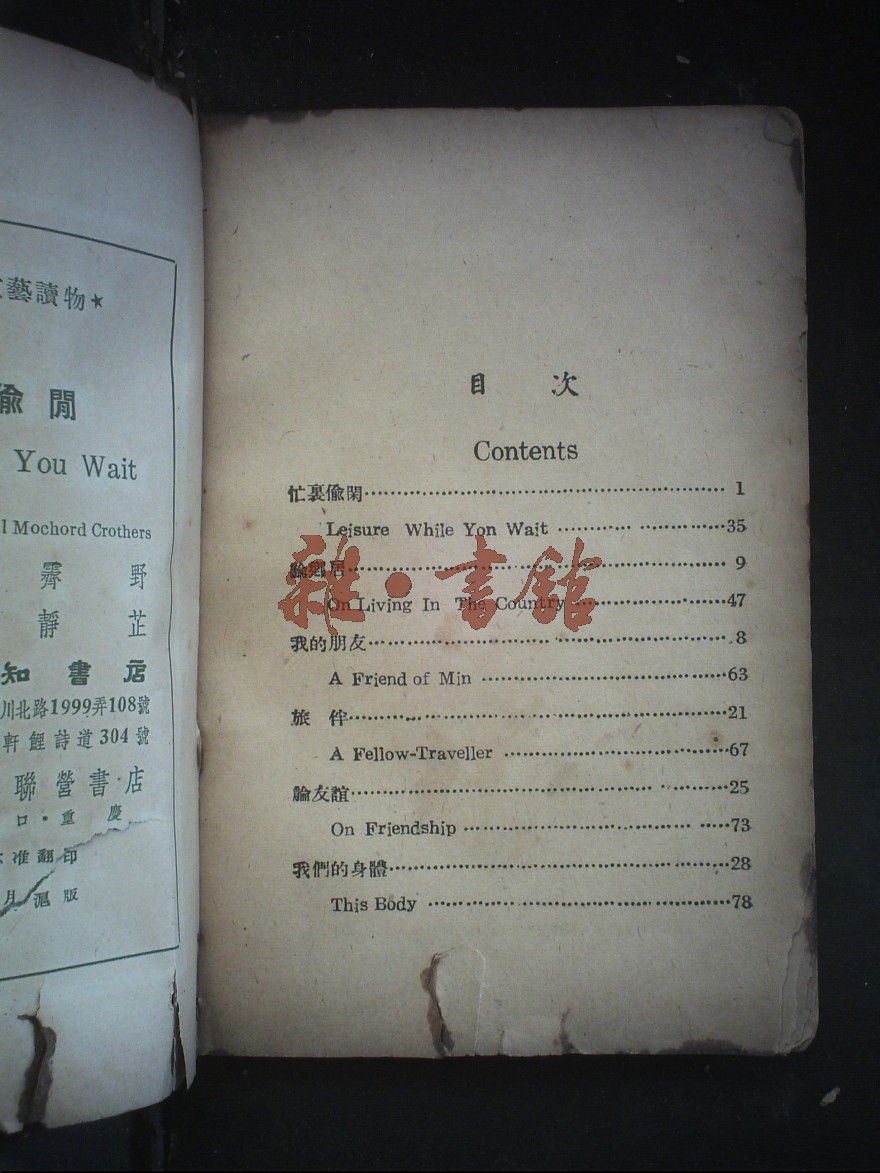 藝讀物★
偷閒
You Wait
l Mochord Crothers
霽 野
靜 芷
知書店
川北路1999弄108號
軒鯉詩道304號
聯營書店
口·重慶
准翻印
月滬版
目 次
Contents
忙裏偸閑 1
Leisure While Yon Wait 35
論鄉居 9
On Living In The Country 47
我的朋友 8
A Friend of Min 63
旅 伴 21
A Fellow-Traveller 67
論友誼 25
On Friendship 73
我們的身體 28
This Body 78
雜·書館